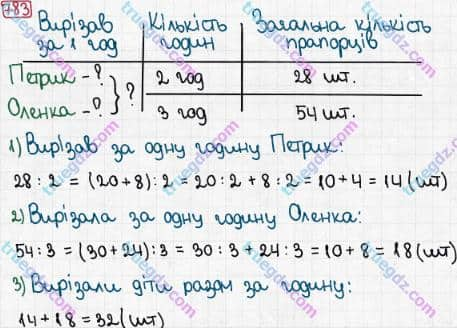 783
Вирізав за 1 год | Кількість годин | Загальна кількість прапорців
Петрик - ? | 2 год | 28 шт.
Оленка - ? } ? | 3 год | 54 шт.
1) Вирізав за одну годину Петрик:
28 : 2 = (20+8) : 2 = 20 : 2 + 8 : 2 = 10 + 4 = 14 (шт)
2) Вирізала за одну годину Оленка:
54 : 3 = (30+24) : 3 = 30 : 3 + 24 : 3 = 10 + 8 = 18 (шт)
3) Вирізали діти разом за годину:
14 + 18 = 32 (шт)
truegdz.com